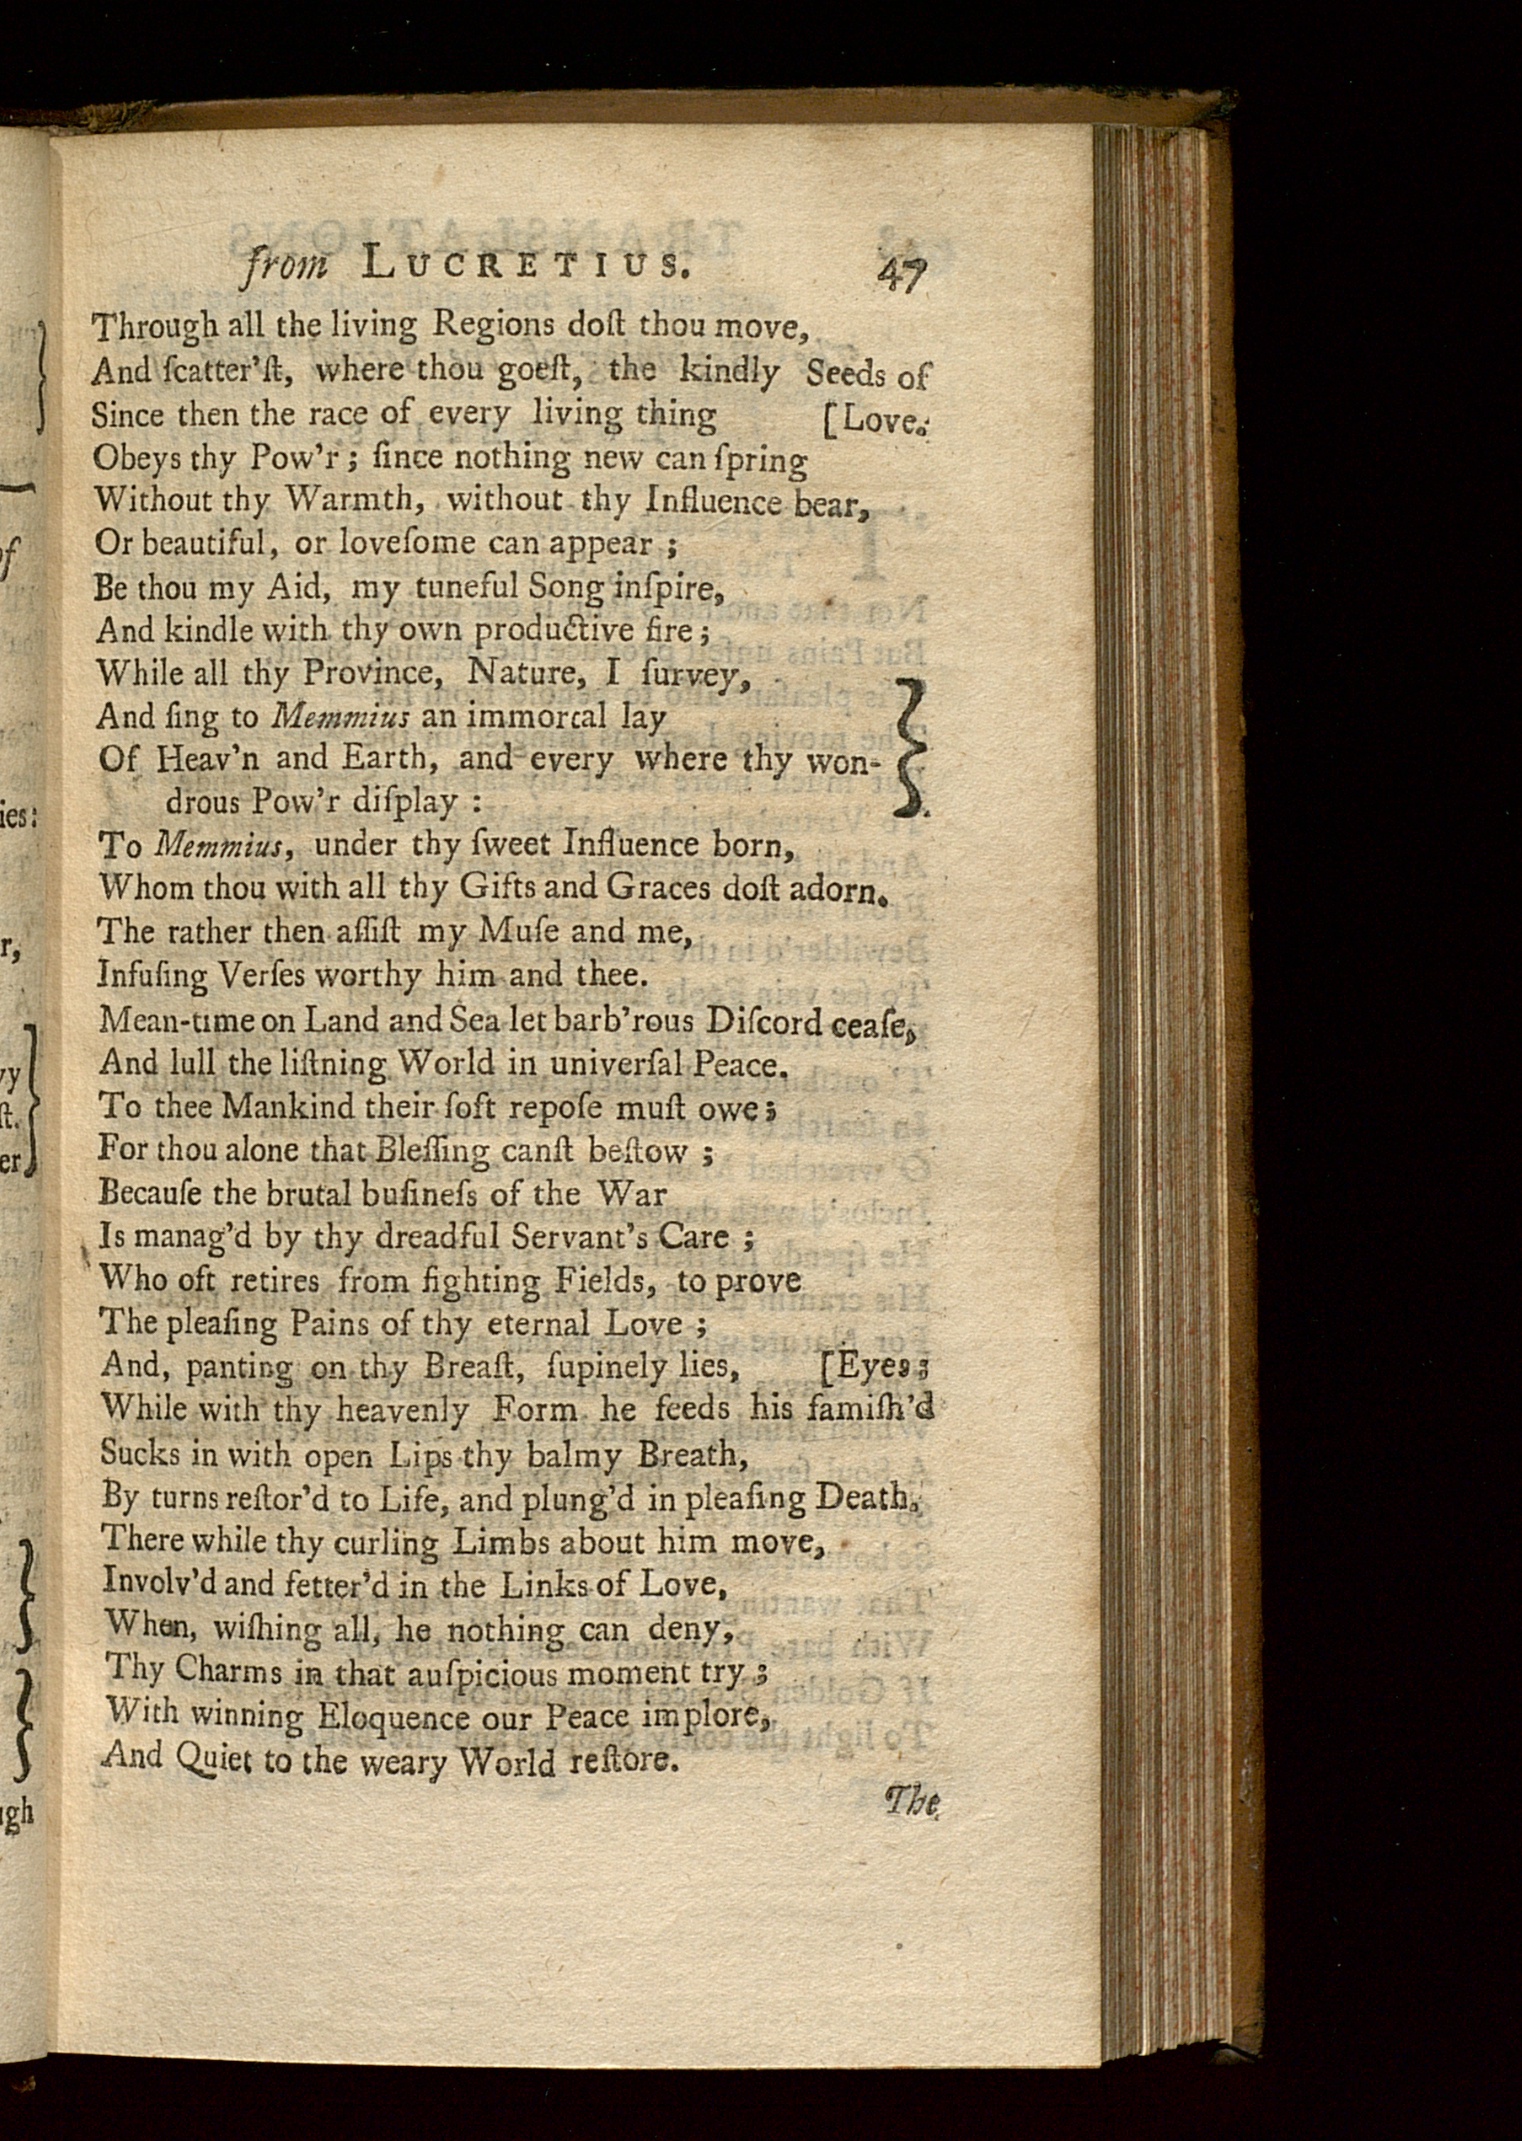 from LUCRETIUS. 47
Through all the living Regions doſt thou move,
And ſcatter'ſt, where thou goeſt, the kindly Seeds of
Since then the race of every living thing [Love.
Obeys thy Pow'r; ſince nothing new can ſpring
Without thy Warmth, without thy Influence bear,
Or beautiful, or loveſome can appear;
Be thou my Aid, my tuneful Song inſpire,
And kindle with thy own productive fire;
While all thy Province, Nature, I ſurvey,
And ſing to Memmius an immortal lay
Of Heav'n and Earth, and every where thy won-
drous Pow'r diſplay:
To Memmius, under thy ſweet Influence born,
Whom thou with all thy Gifts and Graces doſt adorn.
The rather then aſſiſt my Muſe and me,
Infuſing Verſes worthy him and thee.
Mean-time on Land and Sea let barb'rous Diſcord ceaſe,
And lull the liſtning World in univerſal Peace.
To thee Mankind their ſoft repoſe muſt owe;
For thou alone that Bleſſing canſt beſtow;
Becauſe the brutal buſineſs of the War
Is manag'd by thy dreadful Servant's Care;
Who oft retires from fighting Fields, to prove
The pleaſing Pains of thy eternal Love;
And, panting on thy Breaſt, ſupinely lies, [Eyes;
While with thy heavenly Form he feeds his famiſh'd
Sucks in with open Lips thy balmy Breath,
By turns reſtor'd to Life, and plung'd in pleaſing Death.
There while thy curling Limbs about him move,
Involv'd and fetter'd in the Links of Love,
When, wiſhing all, he nothing can deny,
Thy Charms in that auſpicious moment try;
With winning Eloquence our Peace implore,
And Quiet to the weary World reſtore.
The